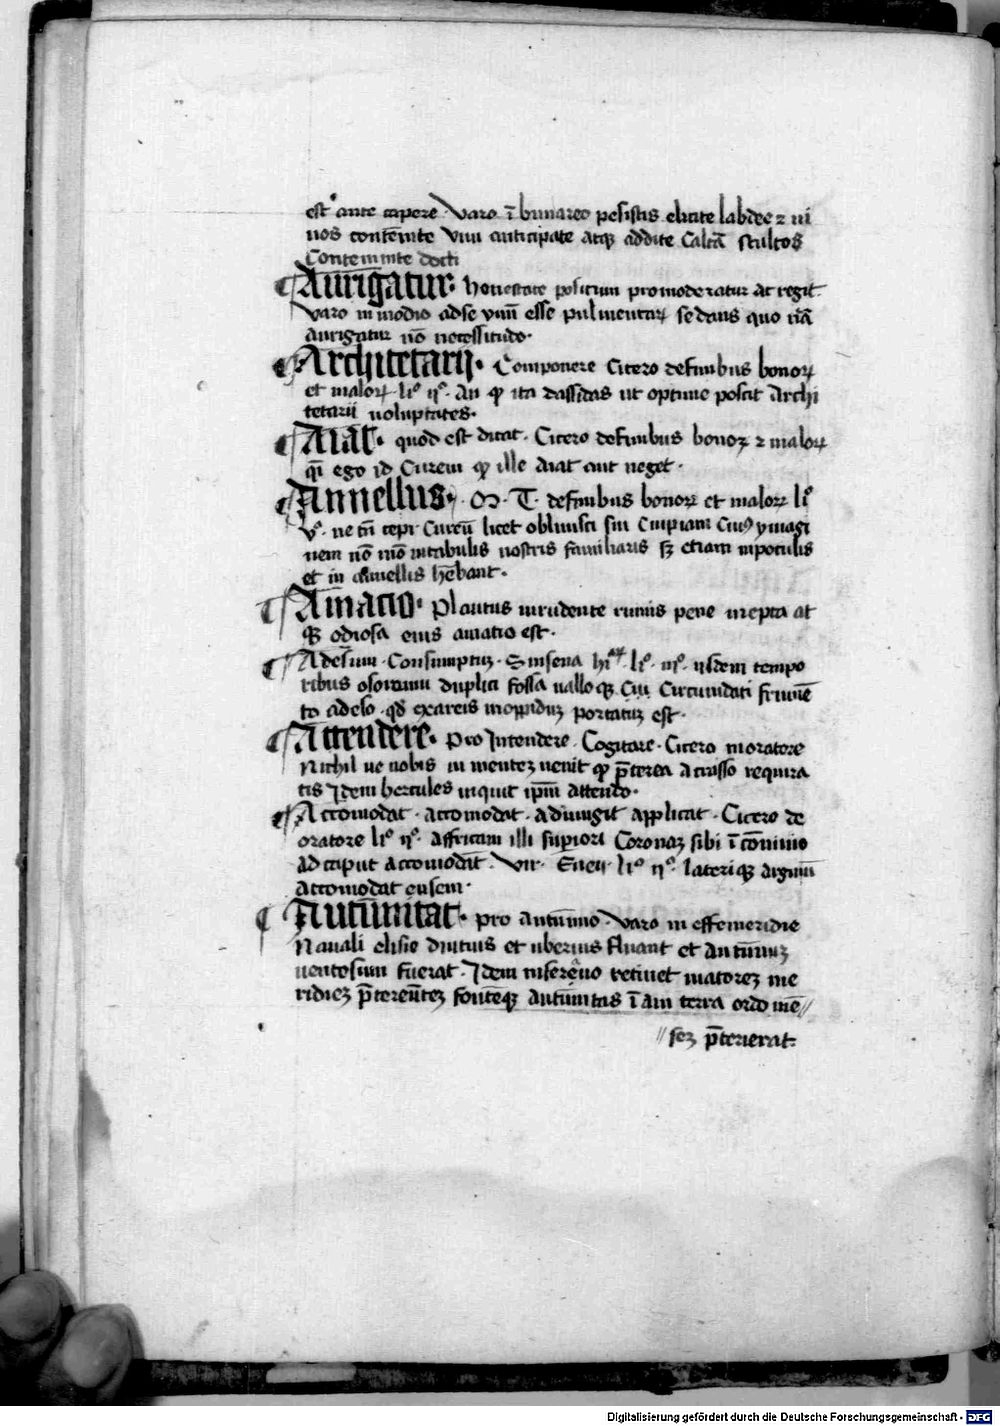 est ante capere · Varo ī bimarco pesistis elicite labdee ꝛ ui
nos contēnite Vinū anticipate atqꝫ addite Caltā stultos
Contemnite docti
¶ Aurigatur · Honestate positum pro moderatur ac regit
Varo in modio ad se unū esse pulmentaꝝ sedans quo nā
aurigatur nō necessitudo ·
¶ Architetarij · Componere Cicero definibus bonoꝝ
et maloꝝ · li° ij° · An ꝙ ita dassidas ut optime possit Archi
tetarii uoluptates ·
¶ Aiat · quod est dicat · Cicero definibus bonoꝝ ꝛ maloꝝ
qī ego id Curem ꝙ ille Aiat aut neget ·
¶ Annellus · M · T · definibus bonoꝝ et maloꝝ li°
V° · ne tn̄ cepi Cureū licet obliuisci sui Cuipiam Ciuꝰ ymagi
nem nō mō intabulis nostris familiaris sꝫ etiam inpoculis
et in Annellis hēbant ·
¶ Amatio · Plautus inrudente rumis pene inepta at
qꝫ odiosa eius amatio est ·
¶ Adesum · Consumptuꝫ · Sinsena · li° · iij° · iisdem tempo
ribus osoranū duplici fossa ualloqꝫ Ciū Circumdati frumē
to adeso · qd̄ exareis inoppiduꝫ portatuꝫ est ·
¶ Attendere · Pro Intendere · Cogitare · Cicero in oratore
Nichil ne uobis in menteꝫ uenit ꝙ p̄terea a crasso requira
tis Idem hercules inquit ipm̄ attendo ·
¶ Accomodat · accomodat · adiungit applicat · Cicero de
oratore li° ij° · affricam illi supiori Coronaꝫ sibi ī cōniuio
ad caput accomodāt · Vir · Eneij · li° ij° · lateriqꝫ argiuū
accomodat ensem ·
¶ Autūmitat · pro autūmo · Varo in effemeridie
Nauali elisie diutius et uberius fluant et autūmuꝫ
uentosum fuerat · Idem inserēno retinet maioreꝫ me
ridieꝫ p̄tereūteꝫ fontēqꝫ autūmitas ī am terra ordo mē//
//seꝫ p̄terierat ·